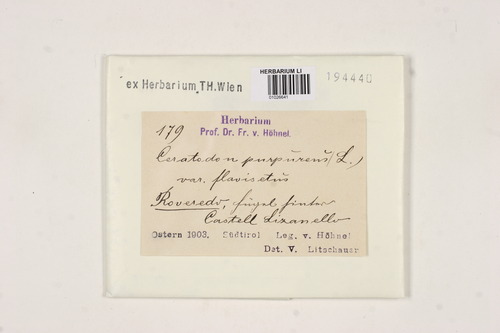 HERBARIUM LI
194440
ex Herbarium TH. Wien
Herbarium
179 Prof. Dr. Fr. v. Höhnel.
Ceratodon purpureus (L.)
var. flavisetus
Roveredo, hügel hinter
Castell Lizanello
Ostern 1903. Südtirol Leg. v. Höhnel
Det. V. Litschauer